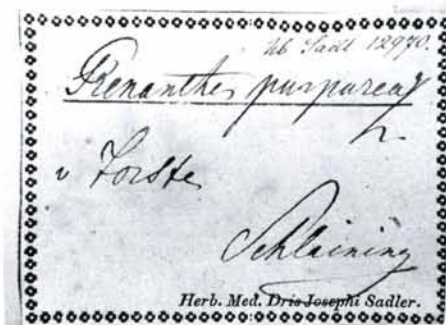 Hb Sadl 12970.
Prenanthes purpurea
v Forste
Schlaining
Herb. Med. Dris Josephi Sadler.